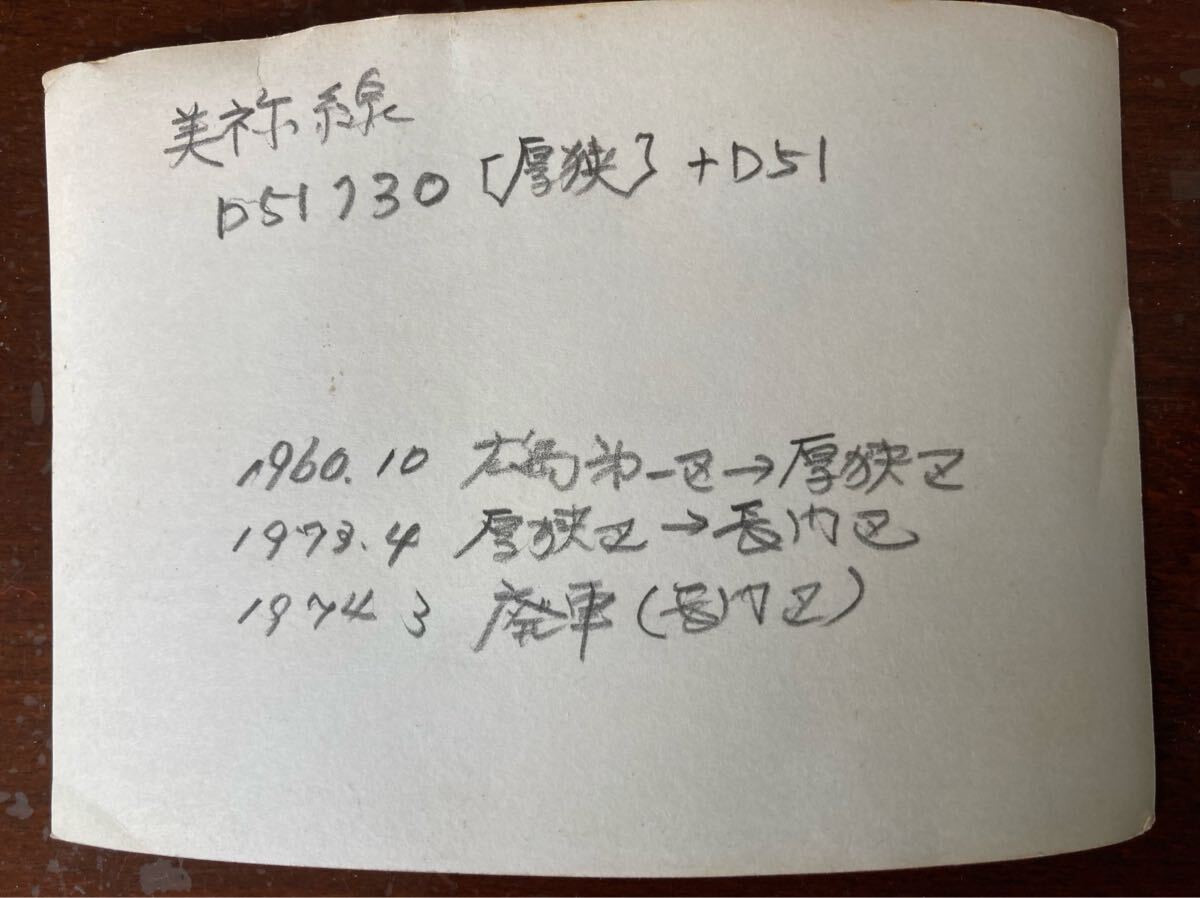 美祢線
D51730 [厚狭] +D51
1960.10 広島第一区→厚狭区
1973.4 厚狭区→長門区
1974 3 廃車(長門区)